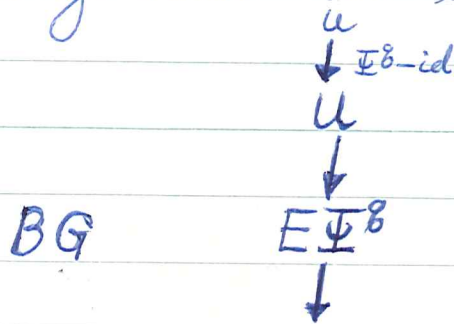 U
↓ Ψ^q-id
U
↓
BG EΨ^q
↓